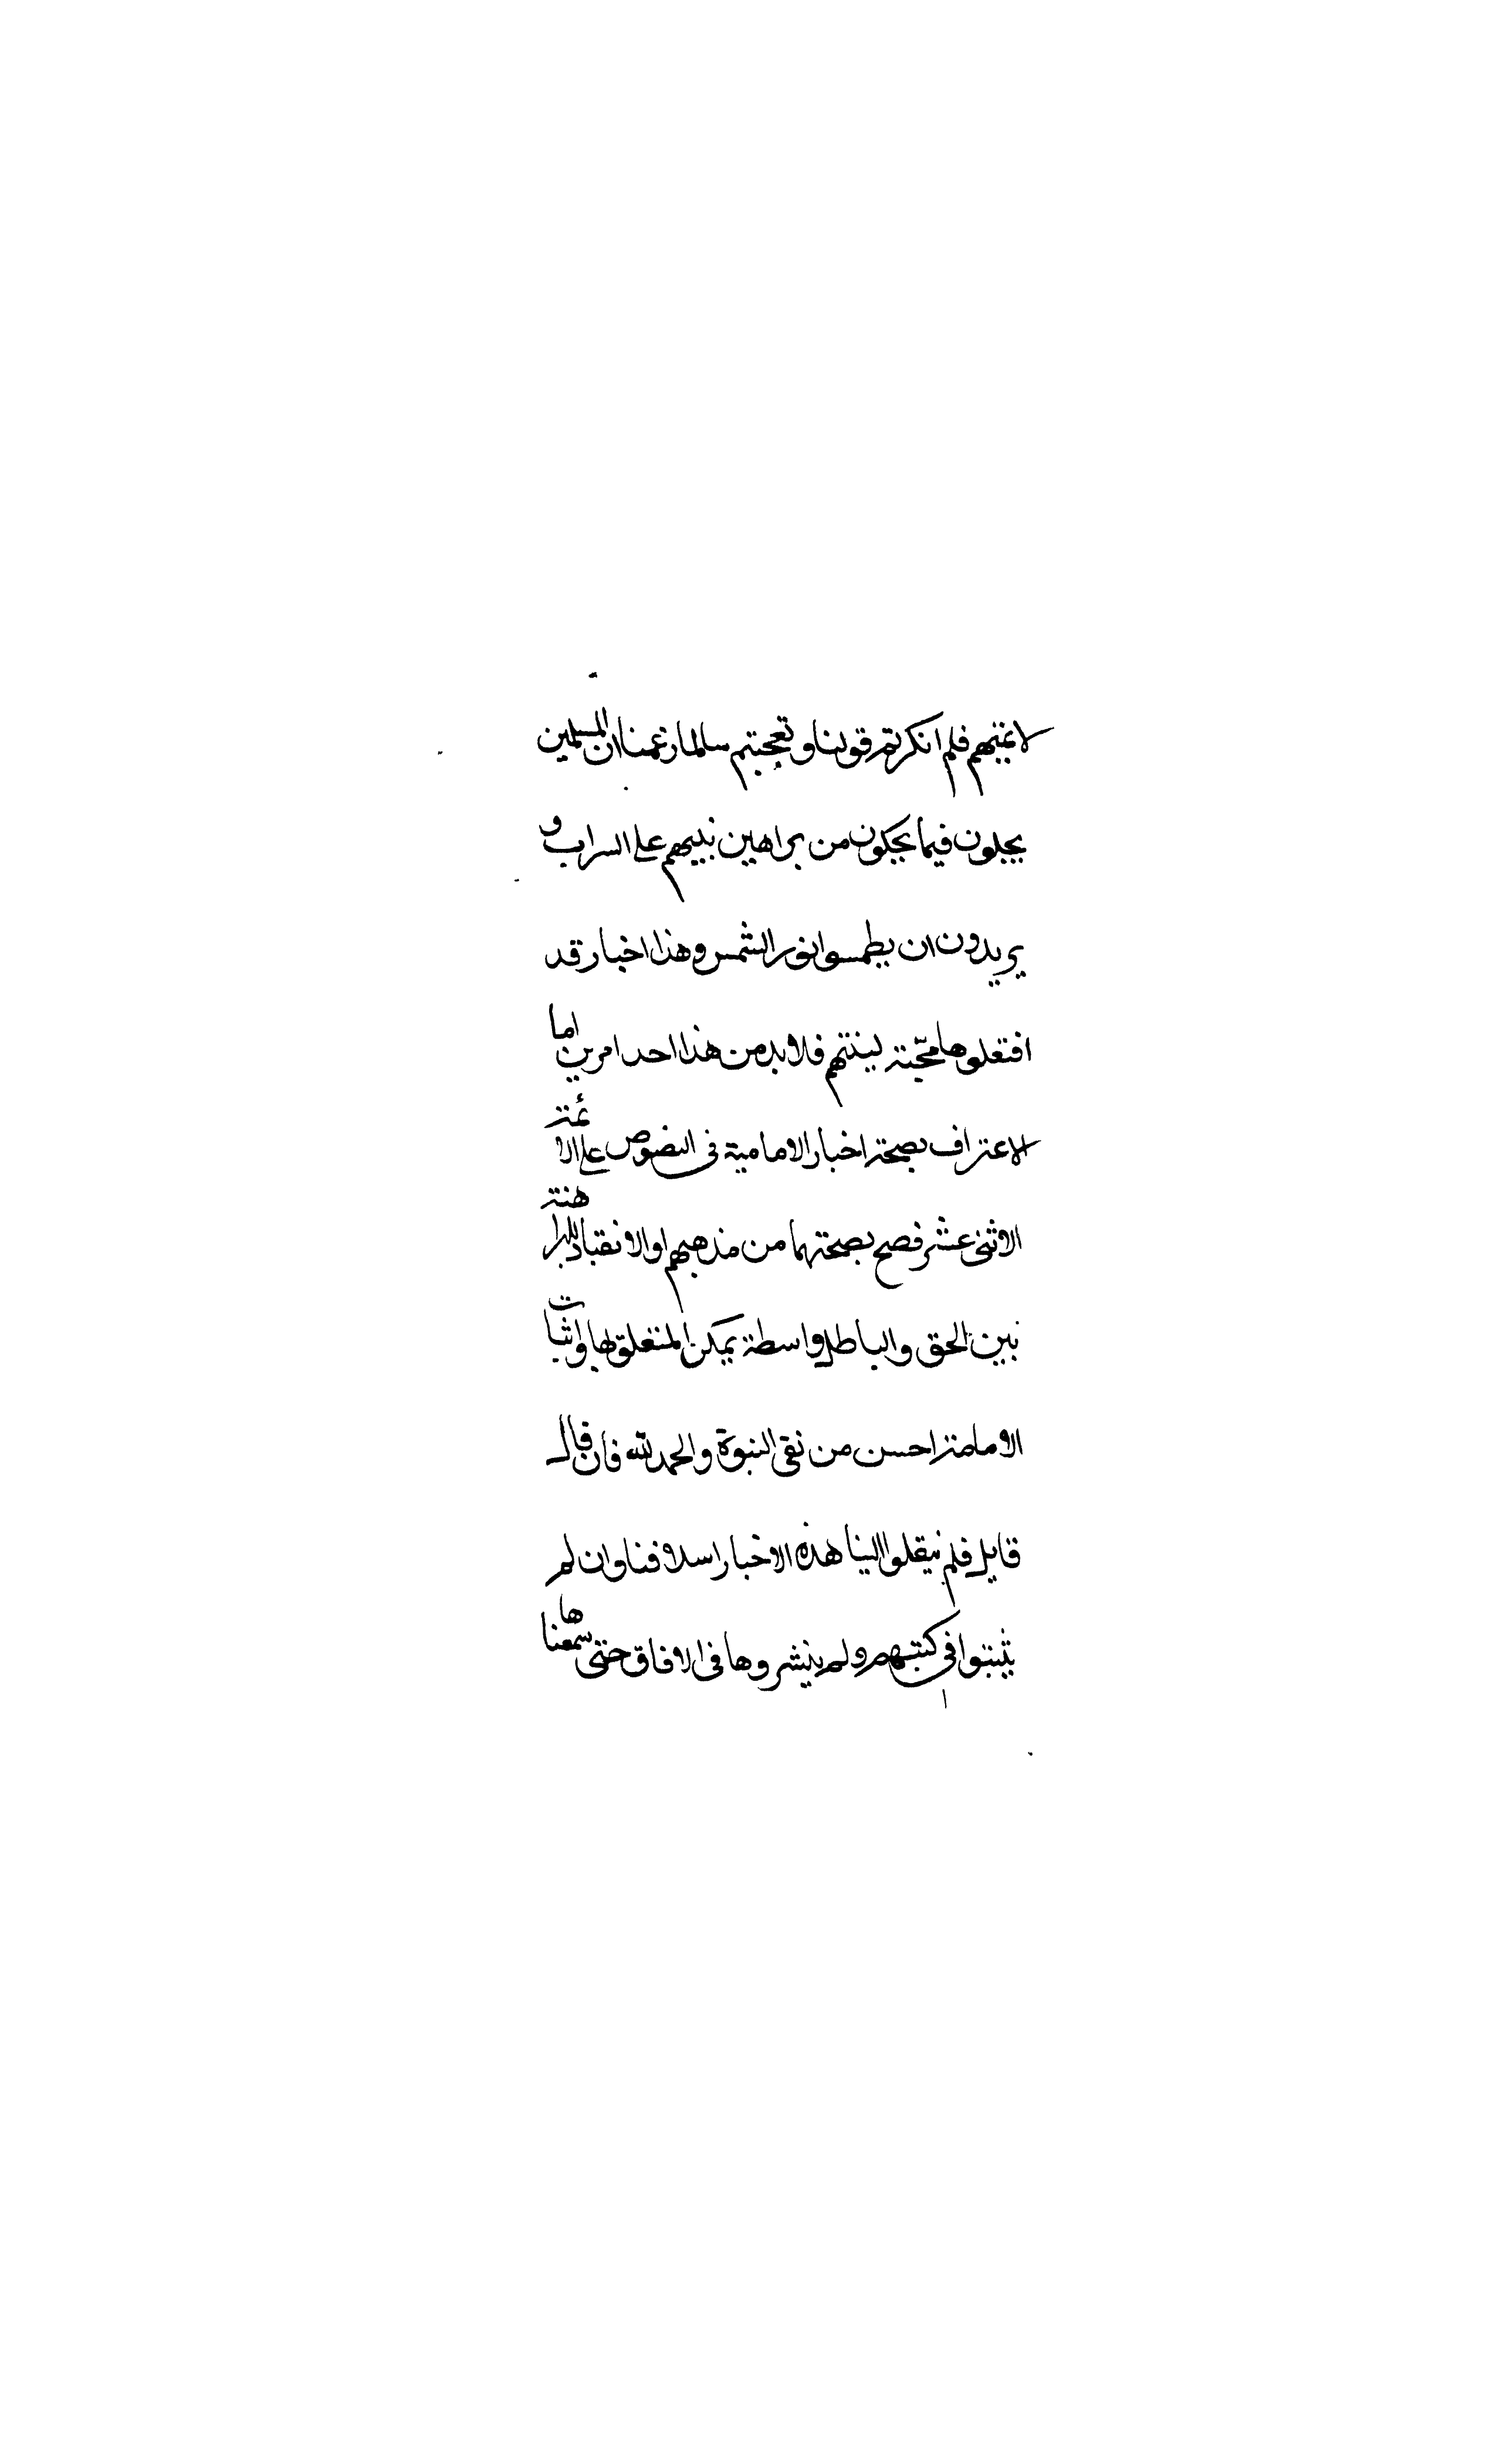 لائمتهم فلم انكرتم قولنا وتعجبتم سالما زعمنا ان المسلمين
يحيلون فيما يحكون من براهين نبيهم على السراب و
يريدون ان يطمسوا نور الشمس وهذا اخبار قد
افتعلوها محبة لبنتهم فلا بد من هذا احد امرين اما
الاعتراف بصحة اخبار الامامية فى النصوص على الائمة
الاثنى عشر فصح بصحتها من مذهبهم او الانقياد للبراهنة
بين الحق والباطل واسطة يمكن المتعلق بها واثبات
الامامة احسن من نفى النبوة والحمد لله فان قال
قايل فلم ينقلوا الينا هذه الاخبار اسلافنا وان لم
يثبتوا فى كتبهم ولم ينشروها فى الافاق حتى سمعناها